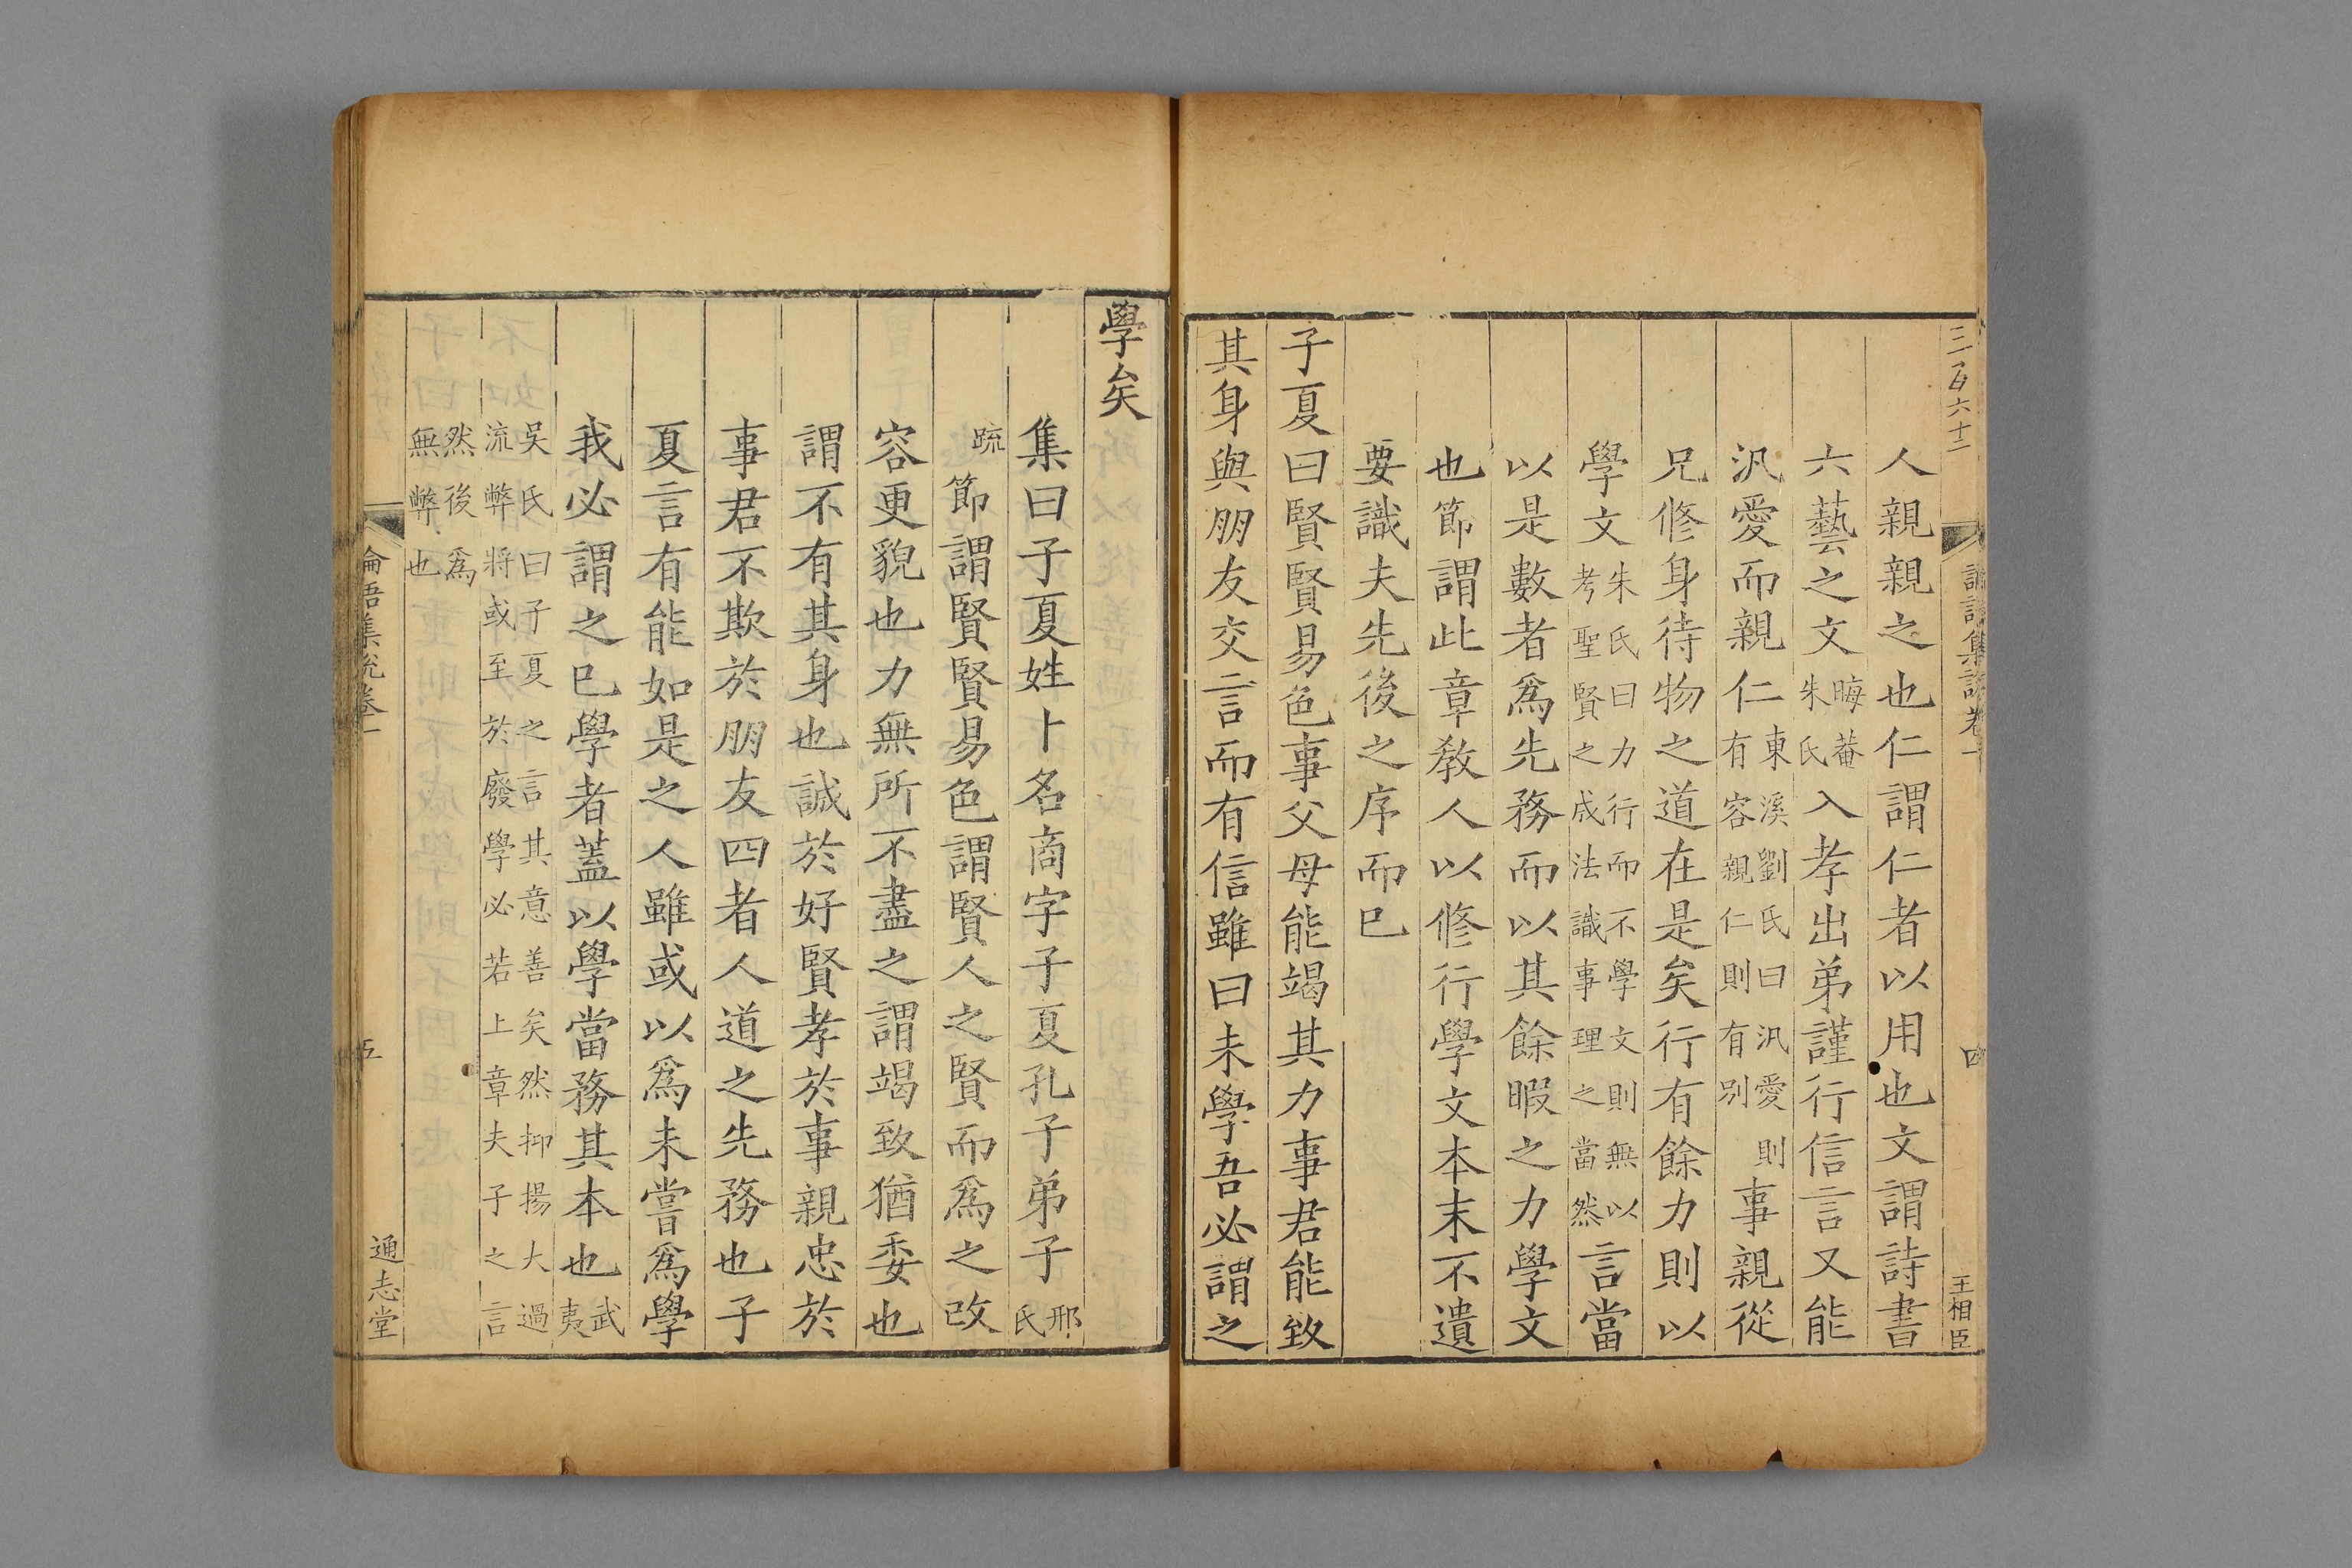 三百六十二
四
王相臣
人親親之也仁謂仁者以用也文謂詩書
六藝之文晦菴朱氏入孝出弟謹行信言又能
汎愛而親仁東溪劉氏曰汎愛則有容親仁則有別事親從
兄修身待物之道在是矣行有餘力則以
學文朱氏曰力行而不學文則無以考聖賢之成法識事理之當然言當
以是數者爲先務而以其餘暇之力學文
也節謂此章教人以修行學文本末不遺
要識夫先後之序而巳
子夏曰賢賢易色事父母能竭其力事君能致
其身與朋友交言而有信雖曰未學吾必謂之
學矣
集曰子夏姓卜名商字子夏孔子弟子邢氏
疏節謂賢賢易色謂賢人之賢而爲之改
容更貌也力無所不盡之謂竭致猶委也
謂不有其身也誠於好賢孝於事親忠於
事君不欺於朋友四者人道之先務也子
夏言有能如是之人雖或以爲未嘗爲學
我必謂之巳學者蓋以學當務其本也武夷
吳氏曰子夏之言其意善矣然抑揚大過
流弊將或至於廢學必若上章夫子之言
然後爲
無弊也
論語集說卷一
五
通志堂